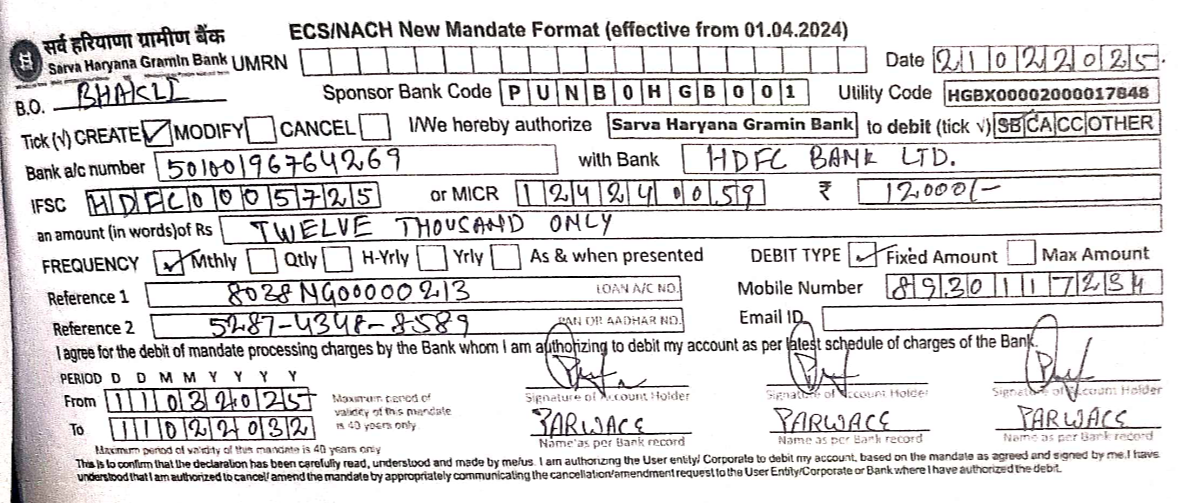 ECS/NACH New Mandate Format (effective from 01.04.2024)
सर्व हरियाणा ग्रामीण बैंक
Sarva Haryana Gramin Bank UMRN Date 21022025
B.O. BHAKLI Sponsor Bank Code PUNB0HGB001 Utility Code HGBX00002000017848
Tick (√) CREATE ✓ MODIFY CANCEL I/We hereby authorize Sarva Haryana Gramin Bank to debit (tick √) SB CA CC OTHER
Bank a/c number 50100196764269 with Bank HDFC BANK LTD.
IFSC HDFC0005725 or MICR 124240059 ₹ 12000/-
an amount (in words)of Rs TWELVE THOUSAND ONLY
FREQUENCY ✓ Mthly Qtly H-Yrly Yrly As & when presented DEBIT TYPE ✓ Fixed Amount Max Amount
Reference 1 8038NG00000213 LOAN A/C NO. Mobile Number 8930117234
Reference 2 5287-4348-8589 PAN OR AADHAR NO. Email ID
I agree for the debit of mandate processing charges by the Bank whom I am authorizing to debit my account as per latest schedule of charges of the Bank.
PERIOD D D M M Y Y Y Y
From 11032025 Maximum period of validity of this mandate is 40 years only
To 11022032
Signature of Account Holder Signature of Account Holder Signature of Account Holder
PARWACE PARWACE PARWACE
Name as per Bank record Name as per Bank record Name as per Bank record
Maximum period of validity of this mandate is 40 years only
This is to confirm that the declaration has been carefully read, understood and made by me/us. I am authorizing the User entity/ Corporate to debit my account, based on the mandate as agreed and signed by me.I have
understood that I am authorized to cancel/ amend the mandate by appropriately communicating the cancellation/amendment request to the User Entity/Corporate or Bank where I have authorized the debit.